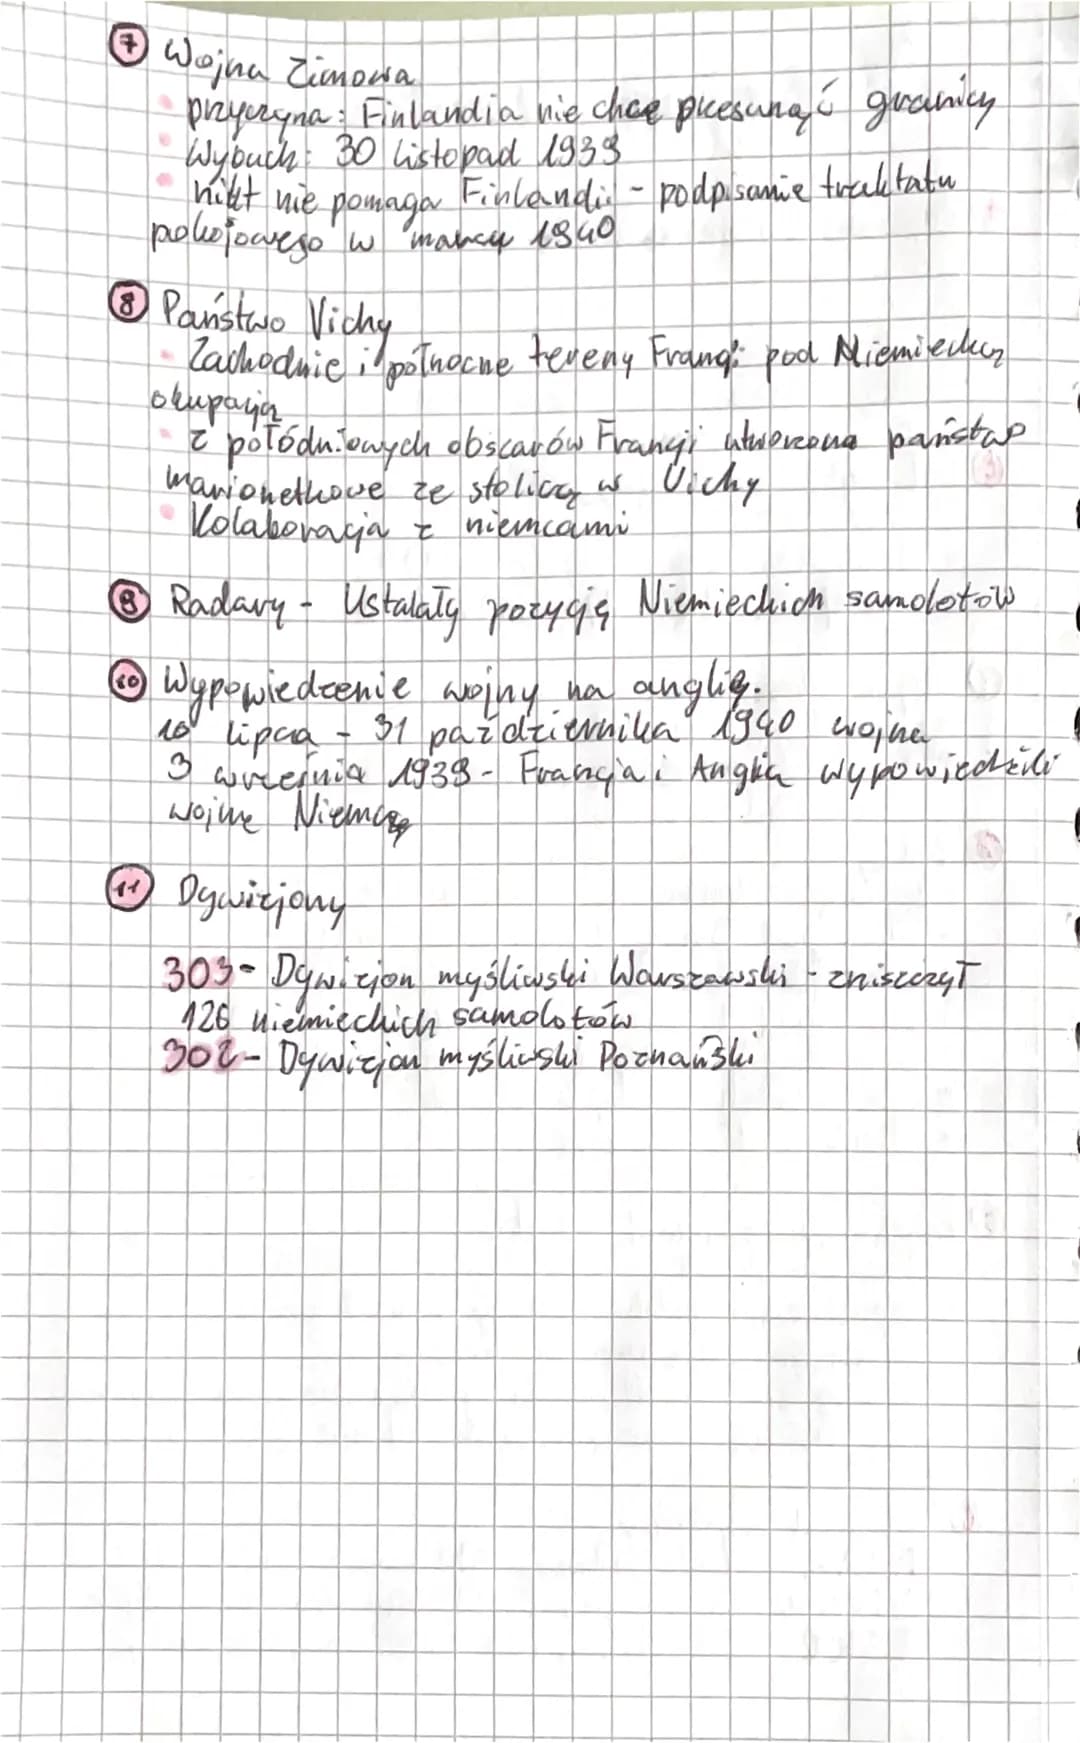 7 Wojna Zimowa
przyczyna: Finlandia nie chce przesunąć granicy
Wybuch: 30 listopad 1939
nikt nie pomaga Finlandii - podpisanie traktatu
pokojowego w marcu 1940
8 Państwo Vichy
Zachodnie i północne tereny Francji pod Niemiecką
okupacją
z połódniowych obszarów Francji utworzona państwo
marionetkowe ze stolicą w Vichy
Kolaboracja z niemcami
9 Radary - Ustalały pozycję Niemieckich samolotów
10 Wypowiedzenie wojny na anglię.
10 lipca - 31 października 1940 wojna
3 września 1939 - Francja i Anglia wypowiedzili
wojnę Niemcą
11 Dywizjony
303 - Dywizjon myśliwski Warszawski - zniszczył
126 niemieckich samolotów
302 - Dywizjon myśliwski Poznański